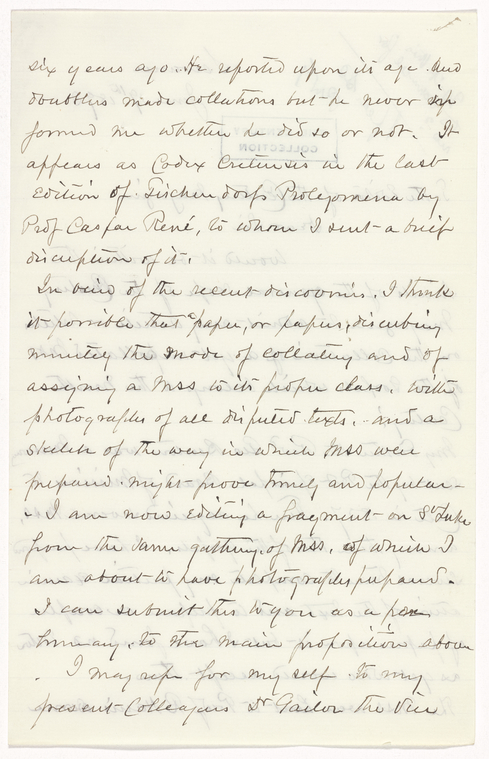 six years ago. He reported upon its age and
doubtless made collations but he never in
formed me whether he did so or not. It
appears as Codex Cretensis in the last
edition of Tischendorfs Prolegomena by
Prof Caspar René, to whom I sent a brief
discription of it.
In veiw of the recent discoveries, I think
it possible that a paper, or papers, discribing
minutely the mode of collating and of
assigning a Mss to its proper class, with
photographs of all disputed texts, and a
sketch of the way in which Mss were
prepared might prove timely and popular-
- I am now editing a fragment on St Luke
from the same gathering of Mss, of which I
am about to have photographs prepared.
I can submit this to you as a
liminary, to the main proposition above
. I may refer for my self to my
present Colleagues Dr Gailor the Vice
COLLECTION